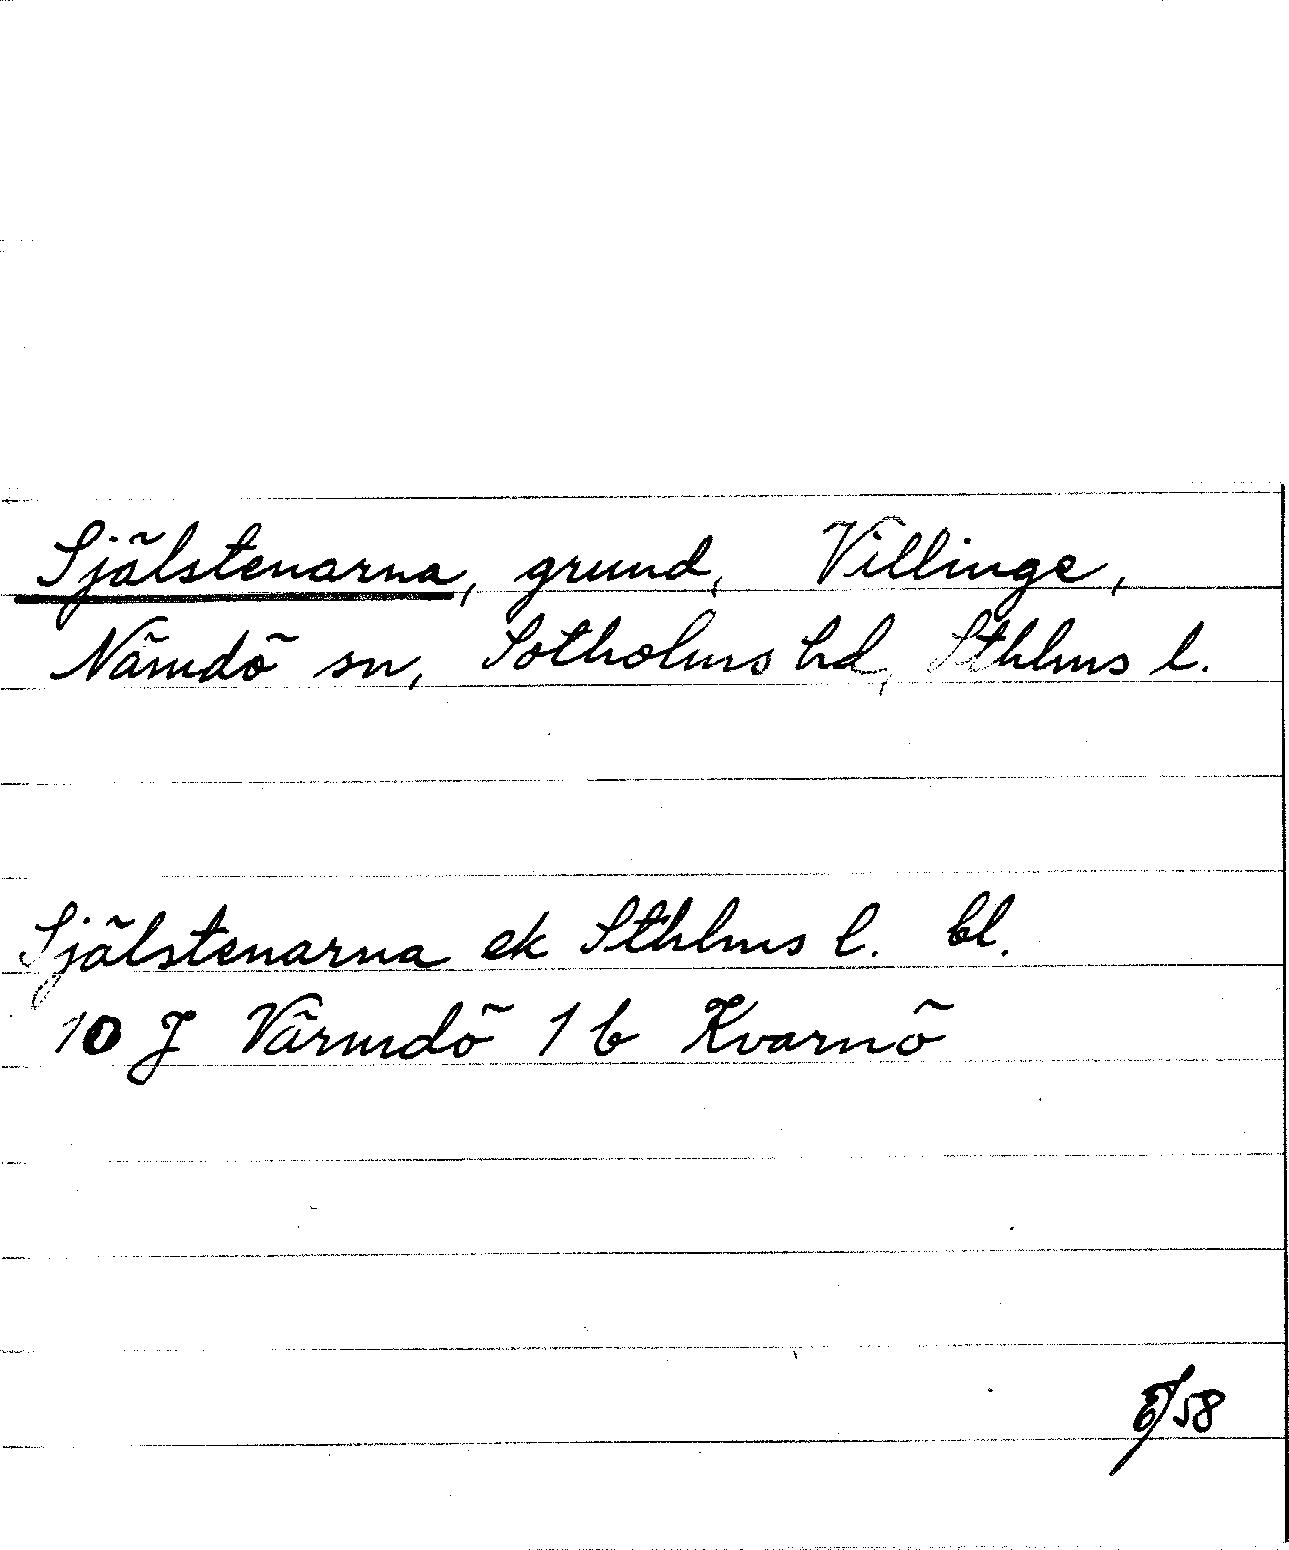 Själstenarna, grund, Villinge,
Nämdö sn, Sotholms hd, Sthlms l.
Själstenarna ek Sthlms l. bl.
10 J Värmdö 1 b Kvarnö
/58